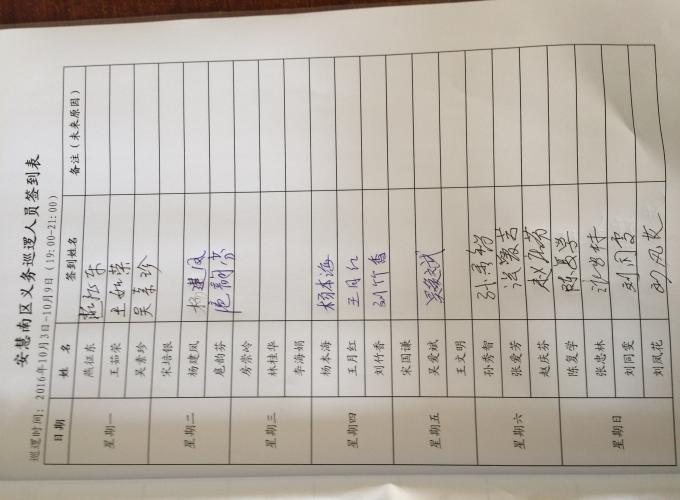 安慧南区义务巡逻人员签到表
巡逻时间：2016年10月3日-10月9日（19:00-21:00）
日期 姓 名 签到姓名 备注（未来原因）
星期一
燕征东 燕征东
王茹荣 王茹荣
吴素珍 吴素珍
星期二
宋培银
杨建凤 杨建凤
扈韵芬 扈韵芬
星期三
房崇岭
林桂华
李海娟
星期四
杨本海 杨本海
王月红 王月红
刘竹香 刘竹香
星期五
宋国谦
吴爱斌 吴爱斌
王文明
星期六
孙秀智 孙秀智
张爱芳 张爱芳
赵庆芬 赵庆芬
星期日
陈复学 陈复学
张忠林 张忠林
刘同雯 刘同雯
刘凤花 刘凤花